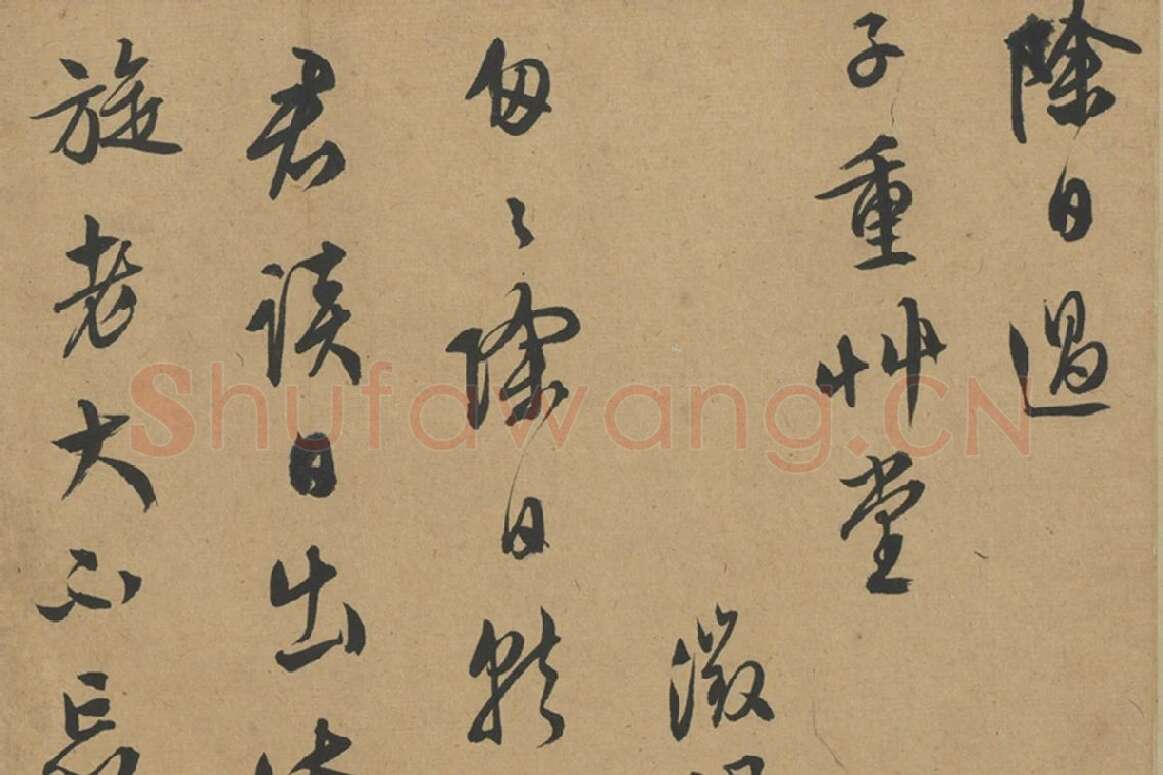 除日過
子重艸堂
澂明
匆〻除日就
君談日出
旋老大不忘
Shufawang.CN